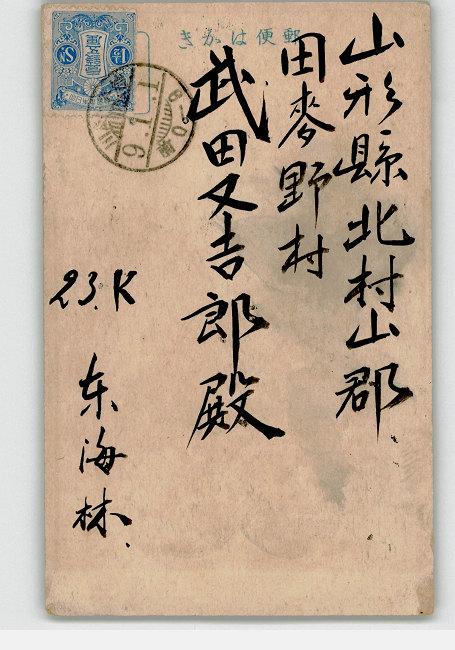 郵便はがき
山形縣北村山郡
田麥野村
武田又吉郎殿
23.K
东海林
9.1.1